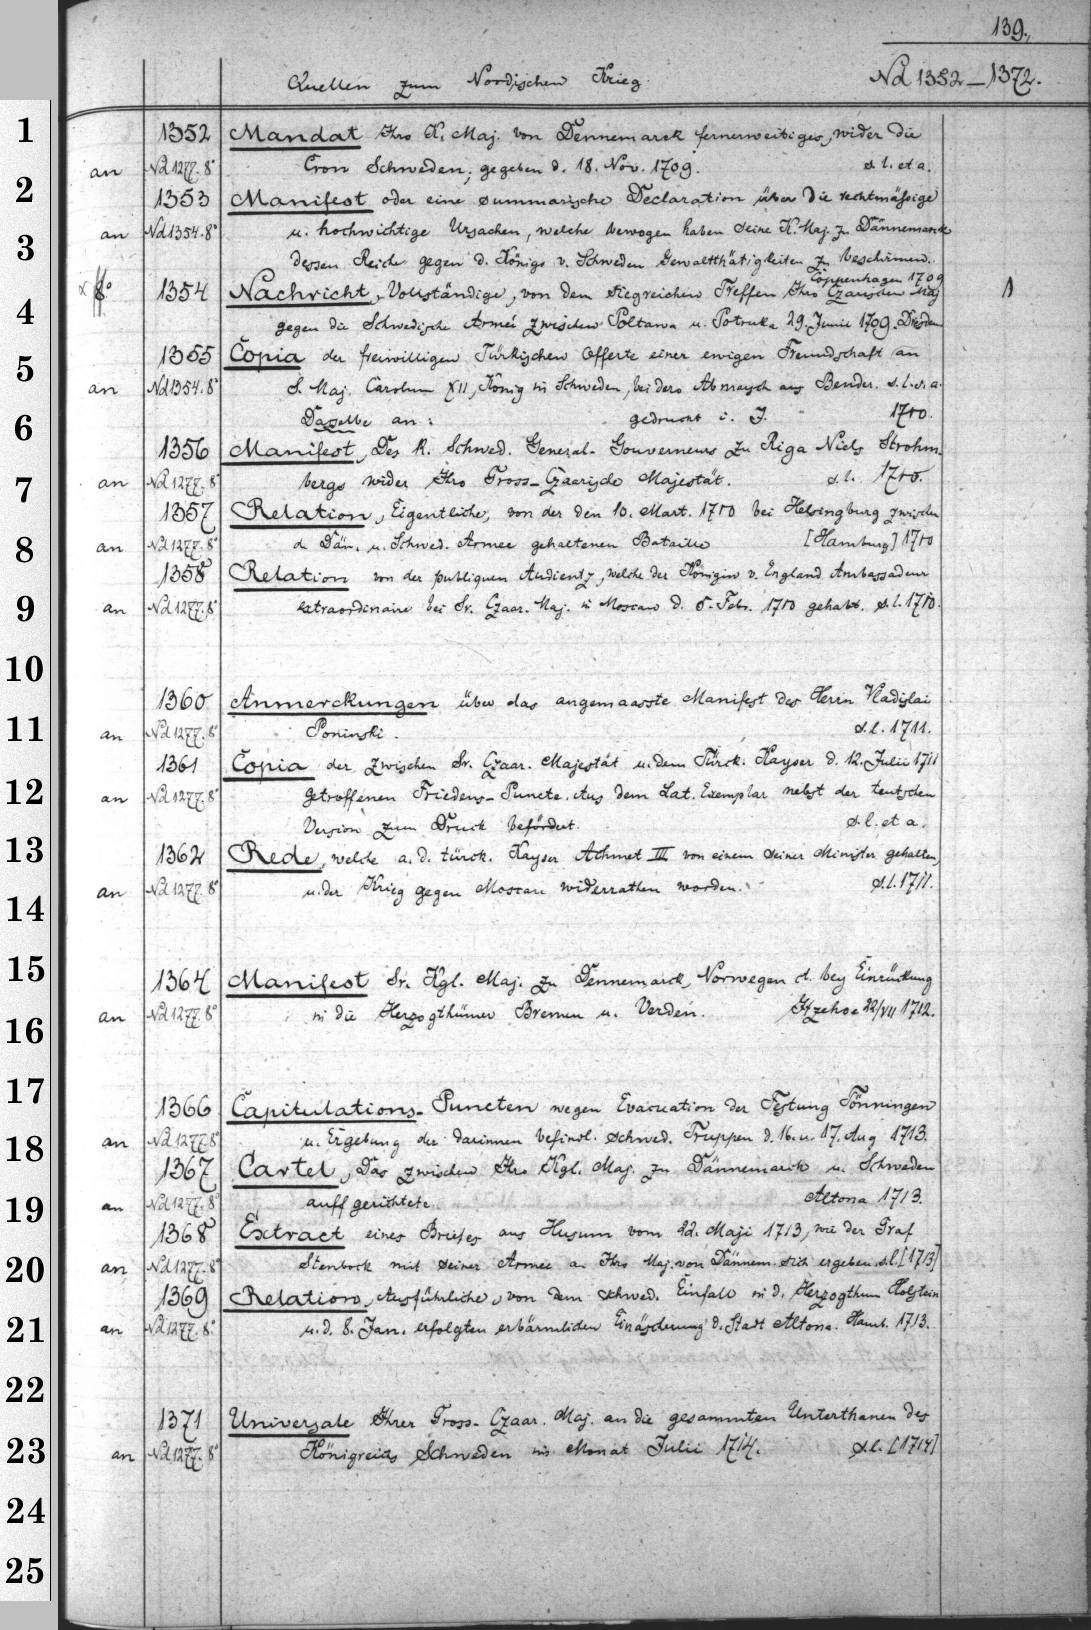 139.
Quellen zum Nordischen Krieg. Nd 1352–1372.
1352 Mandat Ihro K. Maj. von Dennemarck fernerweitiges, wider die
an Nd 1277.8° Cron Schweden, gegeben d. 18. Nov. 1709. s. l. et a.
1353 Manifest oder eine summarische Declaration über die rechtmässige
an Nd 1354.8° u. hochwichtige Ursachen, welche bewogen haben seine K. Maj. zu Dännemarck
dessen Reiche gegen d. Königs v. Schweden Gewaltthätigkeiten zu beschirmen.
Coppenhagen 1709
8° 1354 Nachricht, Vollständige, von dem siegreichen Treffen Ihro Czarischen Maj 1
gegen die Schwedische Armée zwischen Poltawa u. Potruka 29. Junii 1709. Dresden
1355 Copia der freiwilligen Türkischen Offerte einer ewigen Freundschaft an
an Nd 1354.8° S. Maj. Carolum XII, König in Schweden, bei dero Abmarsch aus Bender. s. l. et a.
Dasselbe an: gedruckt i. J. 1710.
1356 Manifest, Des K. Schwed. General-Gouverneurs zu Riga Niels Strohm-
an Nd 1277.8° bergs wider Ihro Gross-Czaarische Majestät. s. l. 1710.
1357 Relation, Eigentliche, von der den 10. Mart. 1710 bei Helsingburg zwischen
an Nd 1277.8° d. Dän. u. Schwed. Armee gehaltenen Bataille [Hamburg] 1710
1358 Relation von der publiquen Audientz, welche der Königin v. England Ambassadeur
an Nd 1277.8° extraordinaire bei Sr. Czaar. Maj. in Moscau d. 5. Febr. 1710 gehabt. s. l. 1710.
1360 Anmerckungen über das angemaasste Manifest des Herrn Vladislai
an Nd 1277.8° Poninski. s. l. 1711.
1361 Copia der zwischen Sr. Czaar. Majestät u. dem Türck. Kayser d. 12. Julii 1711
an Nd 1277.8° getroffenen Friedens-Puncte. Aus dem Lat. Exemplar nebst der teutschen
Version zum Druck befördert. s. l. et a.
1362 Rede, welche a. d. türck. Kayser Achmet III von einem seiner Minister gehalten,
an Nd 1277.8° u. der Krieg gegen Moscau widerrathen worden. s. l. 1711.
1364 Manifest Sr. Kgl. Maj. zu Dennemarck, Norwegen et. bey Einrückung
an Nd 1277.8° in die Herzogthümer Bremen u. Verden. Itzehoe 22/VII 1712.
1366 Capitulations-Puncten wegen Evacuation der Festung Tönningen
an Nd 1277.8° u. Ergebung der darinnen befindl. schwed. Truppen d. 16. u. 17. Aug 1713.
1367 Cartel, Das zwischen Ihro Kgl. Maj. zu Dännemarck u. Schweden
an Nd 1277.8° auffgerichtete. Altona 1713.
1368 Extract eines Briefes aus Husum vom 22. Maji 1713, wie der Graf
an Nd 1277.8° Stenbock mit seiner Armee an Ihro Maj. von Dännem. sich ergeben. s. l. [1713]
1369 Relation, Ausführliche, von dem schwed. Einfall in d. Herzogthum Holstein
an Nd 1277.8° u. d. 8. Jan. erfolgten erbärmlichen Einäscherung d. Stadt Altona. Hamb. 1713.
1371 Universale Ihrer Gross-Czaar. Maj. an die gesammten Unterthanen des
an Nd 1277.8° Königreichs Schweden im Monat Julii 1714. s. l. [1714]
1
2
3
4
5
6
7
8
9
10
11
12
13
14
15
16
17
18
19
20
21
22
23
24
25